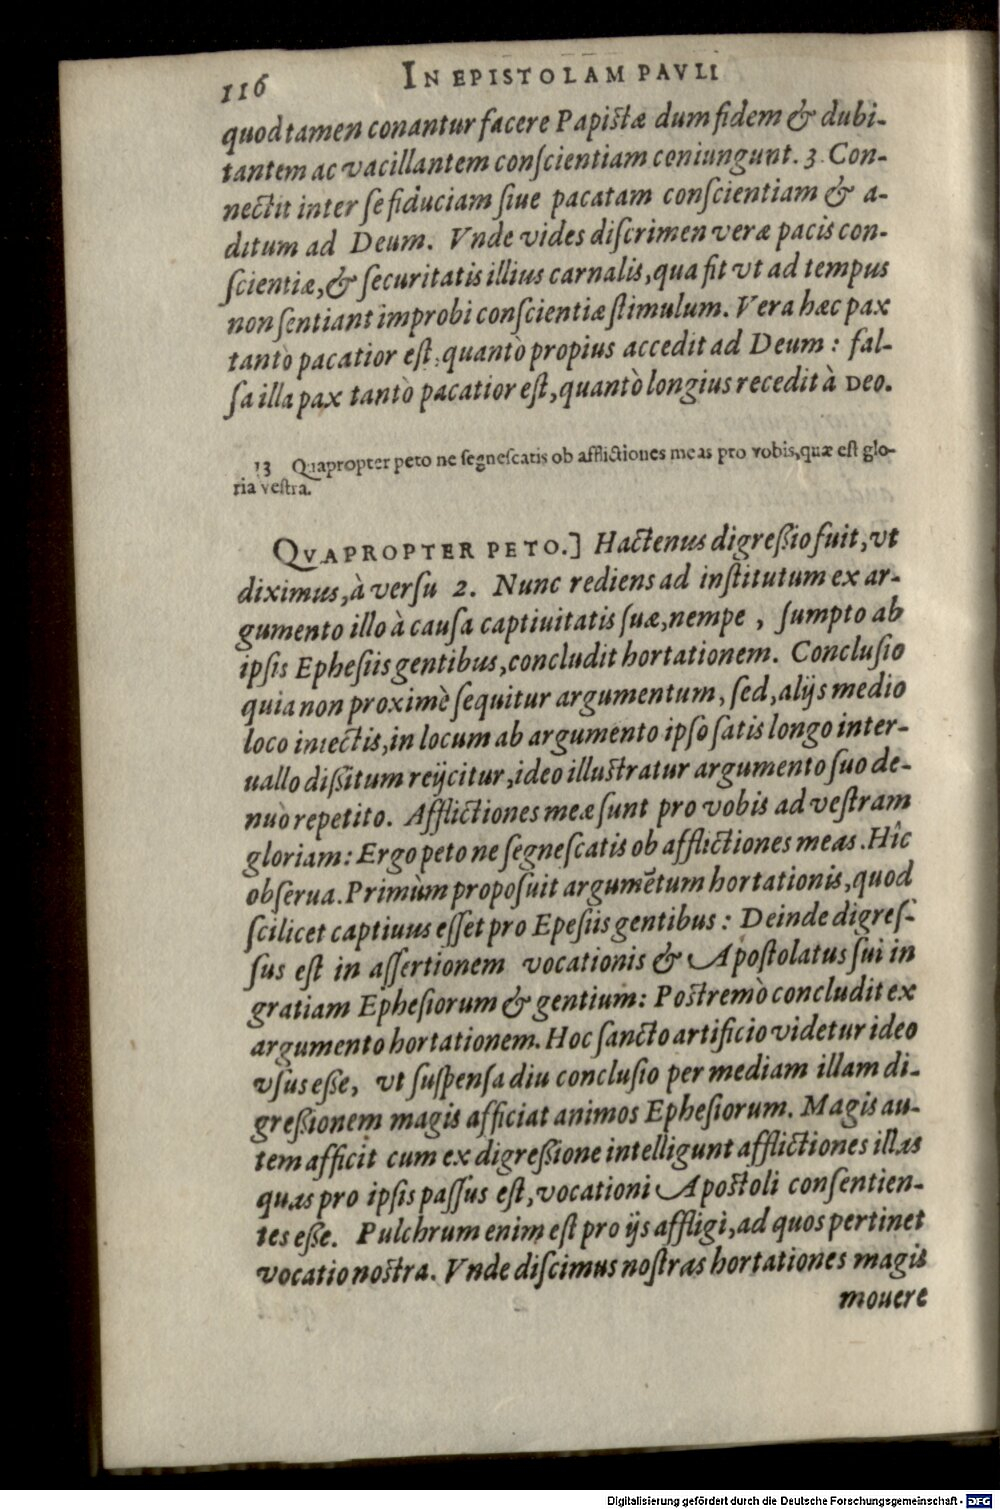 116 IN EPISTOLAM PAVLI
quod tamen conantur facere Papistæ dum fidem & dubi-
tantem ac vacillantem conſcientiam coniungunt. 3 Con-
nectit inter ſe fiduciam ſiue pacatam conſcientiam & a-
ditum ad Deum. Vnde vides diſcrimen veræ pacis con-
ſcientiæ, & ſecuritatis illius carnalis, qua fit vt ad tempus
non ſentiant improbi conſcientiæ ſtimulum. Vera hæc pax
tantò pacatior eſt, quantò propius accedit ad Deum: fal-
ſa illa pax tantò pacatior eſt, quantò longius recedit à DEO.
13 Quapropter peto ne ſegneſcatis ob afflictiones meas pro vobis, quæ eſt glo-
ria veſtra.
QVAPROPTER PETO.] Hactenus digreßio fuit, vt
diximus, à verſu 2. Nunc rediens ad inſtitutum ex ar-
gumento illo à cauſa captiuitatis ſuæ, nempe, ſumpto ab
ipſis Epheſiis gentibus, concludit hortationem. Concluſio
quia non proximè ſequitur argumentum, ſed, alijs medio
loco iniectis, in locum ab argumento ipſo ſatis longo inter-
uallo dißitum reijcitur, ideo illuſtratur argumento ſuo de-
nuò repetito. Afflictiones meæ ſunt pro vobis ad veſtram
gloriam: Ergo peto ne ſegneſcatis ob afflictiones meas. Hîc
obſerua. Primùm propoſuit argumẽtum hortationis, quod
ſcilicet captiuus eſſet pro Epeſiis gentibus: Deinde digreſ-
ſus eſt in aſſertionem vocationis & Apoſtolatus ſui in
gratiam Epheſiorum & gentium: Poſtremò concludit ex
argumento hortationem. Hoc ſancto artificio videtur ideo
vſus eße, vt ſuſpenſa diu concluſio per mediam illam di-
greßionem magis afficiat animos Epheſiorum. Magis au-
tem afficit cum ex digreßione intelligunt afflictiones illas
quas pro ipſis paſſus eſt, vocationi Apoſtoli conſentien-
tes eße. Pulchrum enim eſt pro ijs affligi, ad quos pertinet
vocatio noſtra. Vnde diſcimus noſtras hortationes magis
mouere
Digitalisierung gefördert durch die Deutsche Forschungsgemeinschaft - DFG